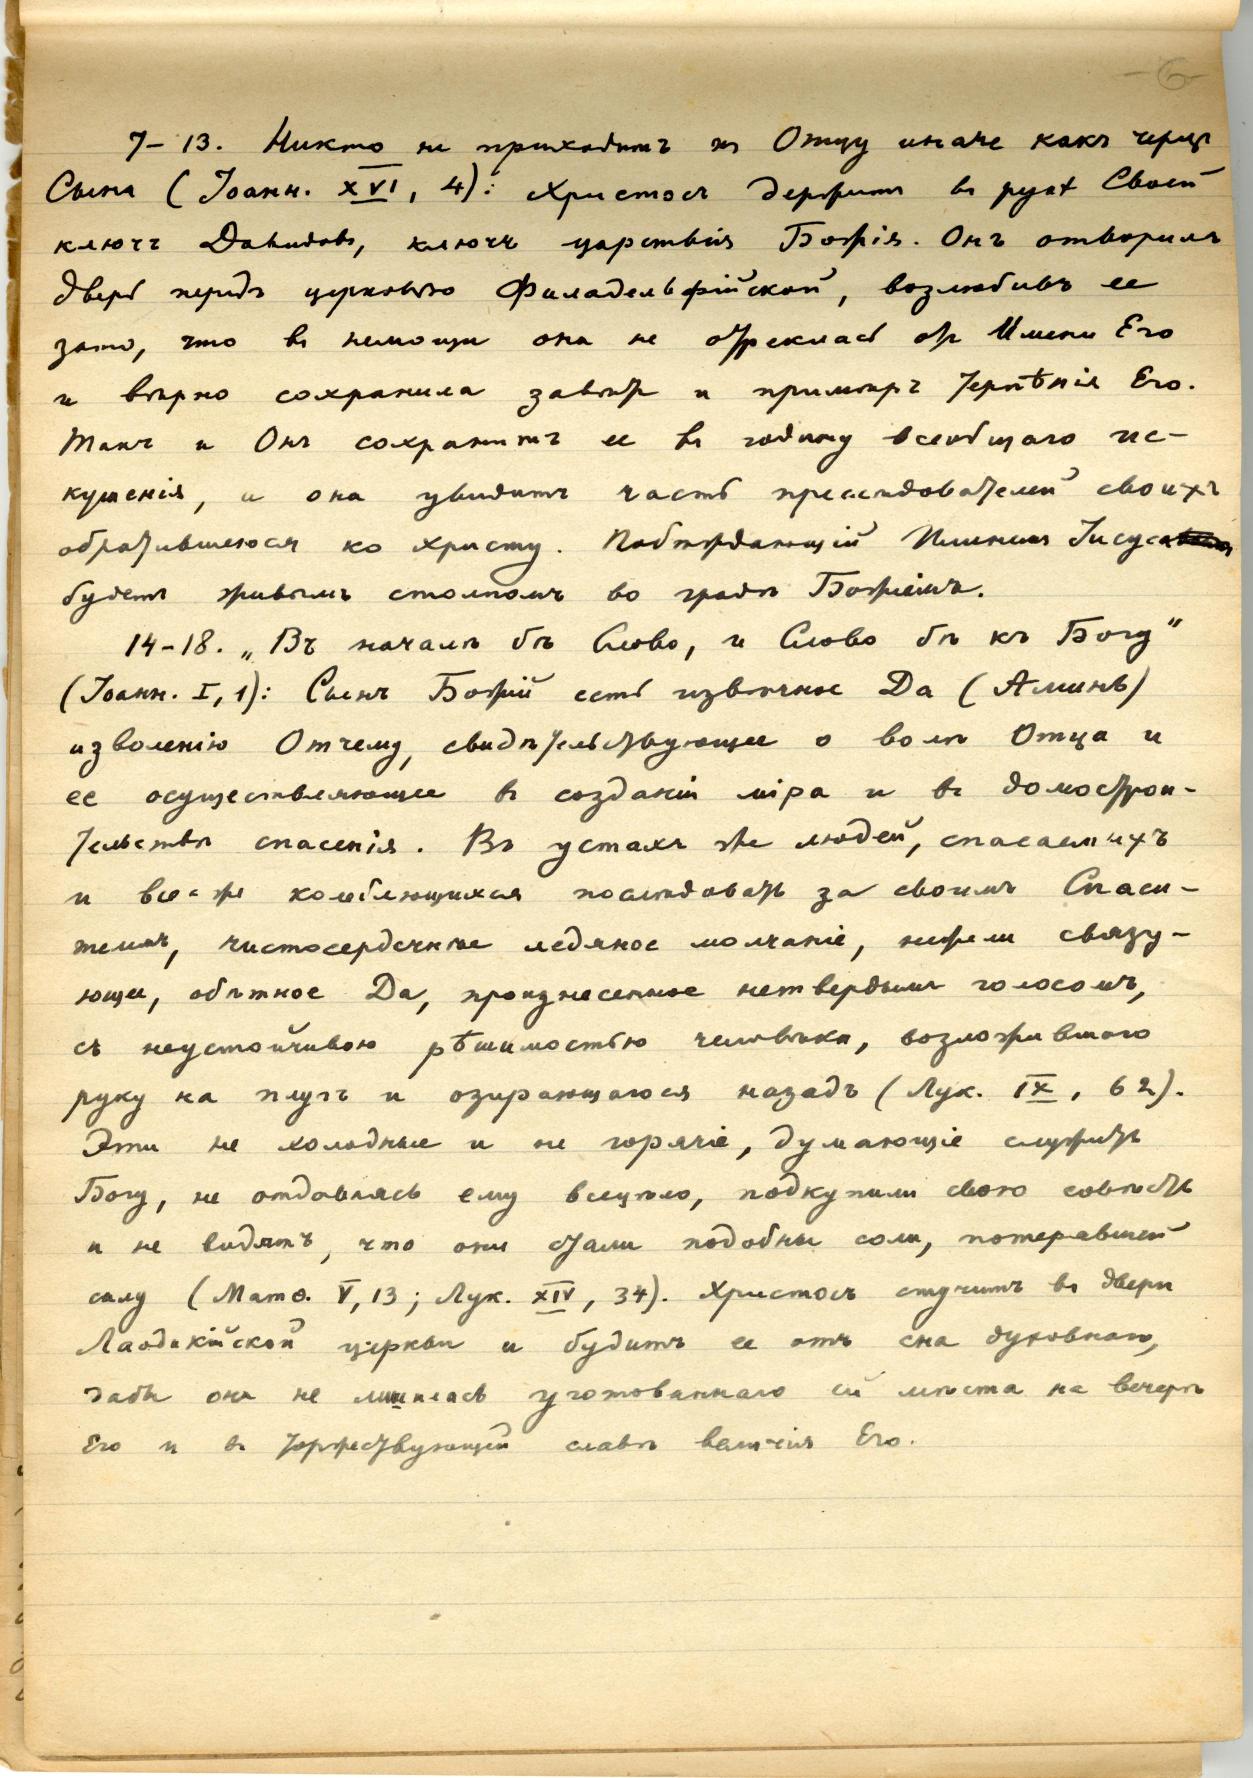 -6-
7-13. Никто не приходитъ къ Отцу иначе какъ черезъ
Сына (Іоанн. XVI, 4): Христосъ держитъ въ рукѣ Своей
ключъ Давидовъ, ключъ царствія Божія. Онъ отворилъ
дверь передъ церковью Филадельфійской, возлюбивъ ее
зато, что въ немощи она не отреклась отъ Имени Его
и вѣрно сохранила завѣтъ и примѣръ терпѣнія Его.
Такъ и Онъ сохранитъ ее въ годину всеобщаго ис-
кушенія, и она увидитъ часть преслѣдователей своихъ
обратившеюся ко Христу. Побѣждающій Именемъ Іисуса
будетъ живымъ столпомъ во градѣ Божіемъ.
14-18. „Въ началѣ бѣ Слово, и Слово бѣ къ Богу"
(Іоанн. I, 1): Сынъ Божій есть извѣчное Да (Аминь)
изволенію Отчему, свидѣтельствующее о волѣ Отца и
ее осуществляющее въ созданіи міра и въ домострои-
тельствѣ спасенія. Въ устахъ же людей, спасаемыхъ
и все-же колеблющихся послѣдовать за своимъ Спаси-
телемъ, чистосердечнѣе ледяное молчаніе, нежели связу-
ющее, обѣтное Да, произнесенное нетвердымъ голосомъ,
съ неустойчивою рѣшимостью человѣка, возложившаго
руку на плугъ и озирающагося назадъ (Лук. IX, 62).
Эти не холодные и не горячіе, думающіе служить
Богу, не отдаваясь ему всецѣло, подкупили свою совѣсть
и не видятъ, что они стали подобны соли, потерявшей
силу (Матѳ. V, 13; Лук. XIV, 34). Христосъ стучитъ въ двери
Лаодикійской церкви и будитъ ее отъ сна духовнаго,
дабы она не лишилась уготованнаго ей мѣста на вечери
Его и въ торжествующей славѣ величія Его.